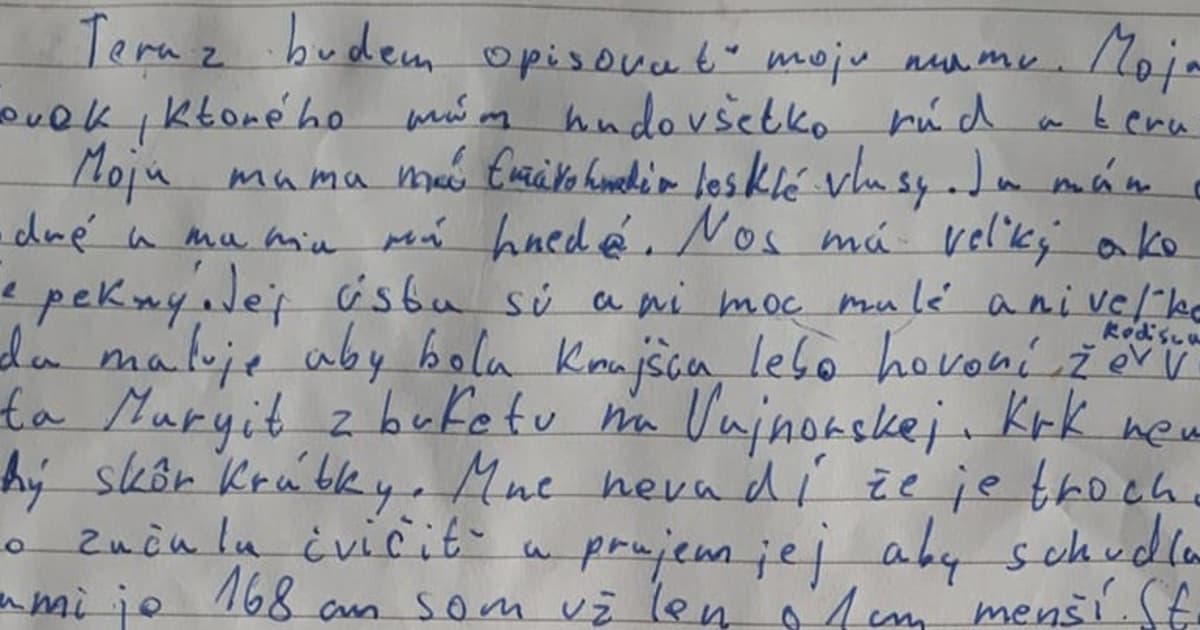 Teraz budem opisovať moju mamu. Moja
ovek, ktorého mám nadovšetko rád a tera
Moja mama má lesklé vlasy. Ja mám
dné a mama má hnedé. Nos má veľký ako
pekný. Jej ústa sú ani moc malé ani veľké
da maľuje aby bola krajšia lebo hovorí, že v
ta Maryit z bufetu na Vajnorskej. Krk nem
hý skôr krátky. Mne nevadí že je troch
o začala cvičiť a prajem jej aby schudla
ami je 168 cm som už len o 1 cm menší. St